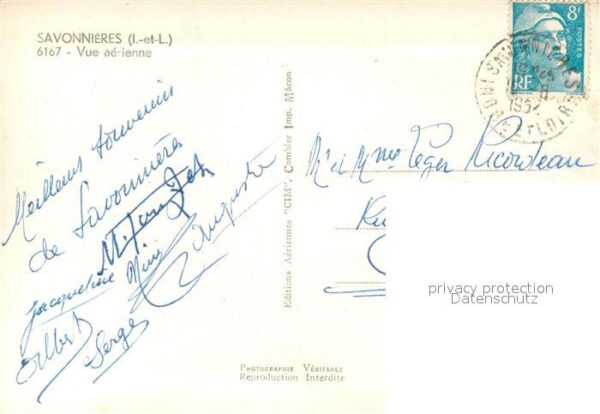 SAVONNIÈRES (I.-et-L.)
6167 - Vue aérienne
Meilleurs souvenirs
de Savonnières
Jacqueline
Auguste
Gilbert
Serge
Editions Aériennes "CIM", Combier Imp. Mâcon
8f
POSTES
RF
1952
M et Mme Roger Ricordeau
privacy protection
Datenschutz
PHOTOGRAPHIE VÉRITABLE
Reproduction Interdite